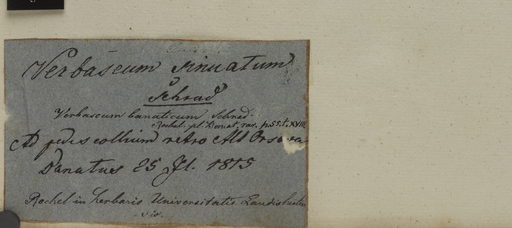 Verbascum sinuatum
Schrad
Verbascum banaticum Schrad.
Rochel. pl. Banat. rar. p. 55. t. XVIII
Ad pedes collium retro Alt Orsova
Banatus 25 Jl. 1815
Rochel in herbaris Universitatis Landishutan